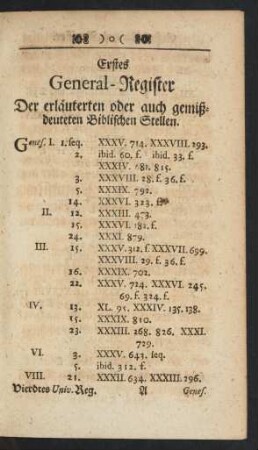 )o(
Erstes
General-Register
Der erläuterten oder auch gemiß-
deuteten Biblischen Stellen.
Genes. I. 1. seq. XXXV. 714. XXXVIII. 193.
2. ibid. 60. f. ibid. 33. f.
XXXIV. 815.
3. XXXVIII. 28. f. 36. f.
5. XXXIX. 792.
14. XXXVI. 323.
II. 12. XXXIII. 473.
15. XXXVI. 182. f.
24. XXXI. 879.
III. 15. XXXV. 312. f. XXXVII. 699.
XXXVIII. 29. f. 36. f.
16. XXXIX. 702.
22. XXXV. 724. XXXVI. 245.
69. f. 324. f.
IV. 13. XL. 95. XXXIV. 135. 138.
15. XXXIX. 810.
23. XXXIII. 268. 826. XXXI.
729.
VI. 3. XXXV. 643. seq.
5. ibid. 312. f.
VIII. 21. XXXII. 634. XXXIII. 296.
Vierdtes Univ. Reg. A Genes.